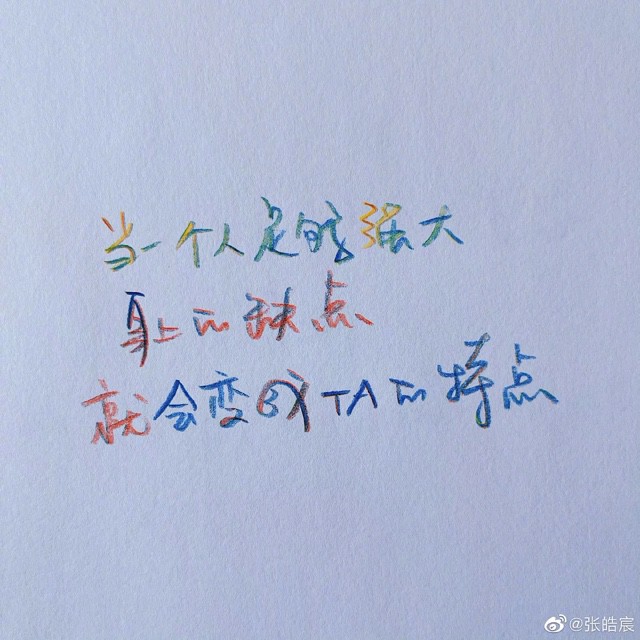 当一个人足够强大
身上的缺点
就会变成TA的特点
@张皓宸